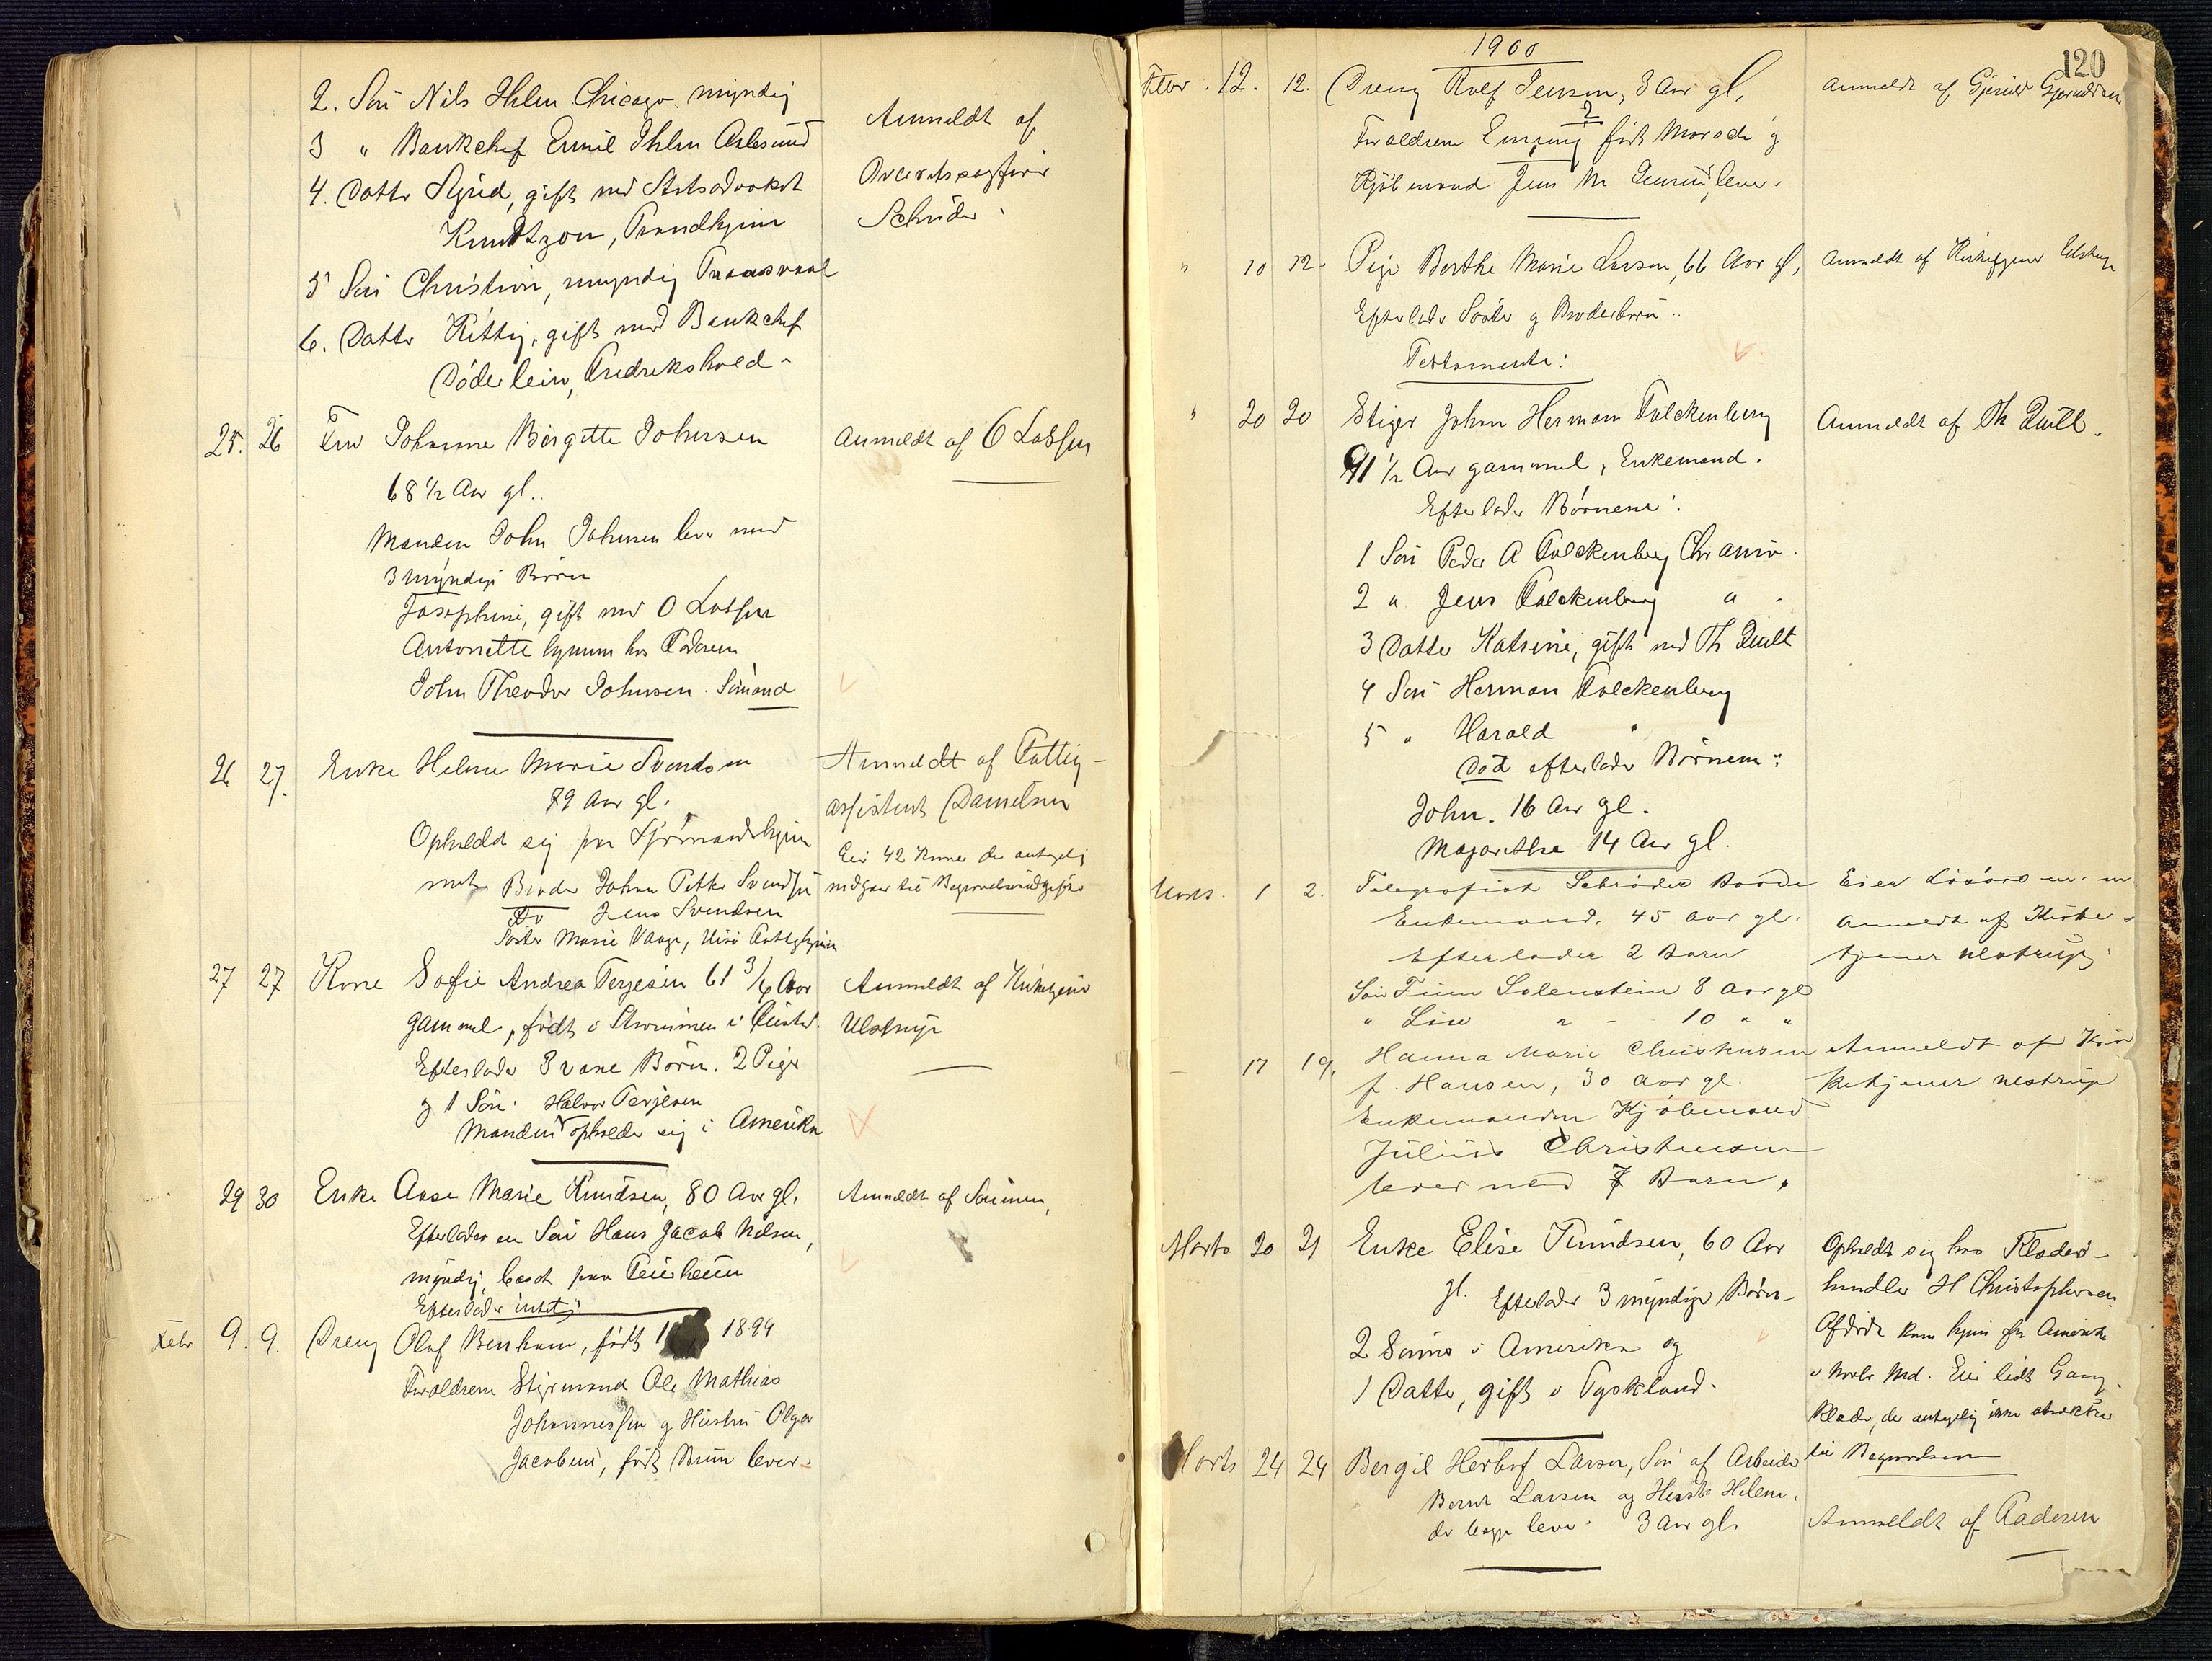 2. Sön Nils Ihlen Chicago. myndig
3 " Bankchef Emil Ihlen Aalesund
4. Datter Sigrid, gift med Statsadvokat
Knudtzon, Trondhjem
5 Sön Christian, myndig Transvaal
6. Datter Kitty, gift med Bankchef
Döderlein, Fredrikshald -
Anmeldt af
Overretssagförer
Schröder
25. 26 Fru Johanne Birgitte Johnsen
68 1/2 Aar gl.
Manden John Johnsen lever med
3 myndige Börn
Josephine, gift med O Lassen
Antonette hjemme hos Faderen
John Theodor Johnsen. Sömand
Anmeldt af O Lassen
26 27. Enke Helene Marie Svendsen
79 Aar gl.
Opholdt sig paa
Broder Johan Petter Svendsen
Do Jens Svendsen
Söster Marie Vaage,
Anmeldt af Fattig-
assistent Danielsen
Eier 42 Kroner der antagelig
medgaar til Begravelsesudgifter
27 27 Kone Sofie Andrea Terjesen 61 3/6 Aar
gammel, födt i
Efterlader 3 vxne Börn. 2 Piger
og 1 Sön. Halvor Terjesen
Manden opholder sig i Amerika
Anmeldt af Kirketjener
Ulstrup
29 30 Enke Aase Marie Knudsen, 80 Aar gl.
Efterlader en Sön Hans Jacob Nilsen,
myndig, bosat paa
Efterlader intet;
Anmeldt af Sönnen,
Febr 9. 9. Dreng Olaf Benham, födt 1 1899
Foraldrene Styrmand Ole Mathias
Johannessen og Hustru Olga
Jacobine, födt Bruun lever.
1900
120
Febr. 12. 12. Dreng Rolf Jensen, 3 Aar gl,
?
Foraldrene födt og
Kjöbmand Jens M Jensen lever.
Anmeldt af
" 10 12. Pige Berthe Marie Larsen, 66 Aar gl,
Efterlader Söster og Broderbörn.
Testamente:
Anmeldt af Kirketjener Ulstrup
" 20 20 Stiger Johan Herman Falckenberg
91 1/2 Aar gammel, Enkemand.
Efterlader Börnene:
1 Sön Peder A Falckenberg Chrania.
2 " Jens Falckenberg "
3 Datter Katrine, gift med Th Quilt
4 Sön Herman Falckenberg
5 " Harald "
Död efterlader Börnene:
John. 16 Aar gl.
Magarethe 14 Aar gl.
Anmeldt af Th Quilt.
Marts. 1 2. Telegrafist Schröder
Enkemand. 45 Aar gl.
Efterlader 2 Barn
Sön Finn Solenstein 8 Aar gl
" " - 10 " "
Eier Lösöre m. m
Anmeldt af Kirke-
tjener Ulstrup;
- 17 19. Hanna Marie Christensen
f. Hansen, 30 Aar gl.
Enkemanden Kjöbmand
Julius Christensen
lever med 7 Barn.
Anmeldt af Kir
ketjener Ulstrup
Marts 20 21 Enke Elise Knudsen, 60 Aar
gl. Efterlader 3 myndige Börn-
2 Sönner i Amerika og
1 Datter, gift i Tyskland.
Opholdt sig hos Klædes-
handler H Christophersen
Afdöde kom hjem fra Amerika
i Novbr Md. Eier lidt Gang-
klæder, der antagelig ikke strækker
til Begravelsen
Marts 24 24 Bergil Herlof Larsen, Sön af Arbeider
Bernt Larsen og Hustr Helene.
der begge lever. 3 Aar gl.
Anmeldt af Faderen